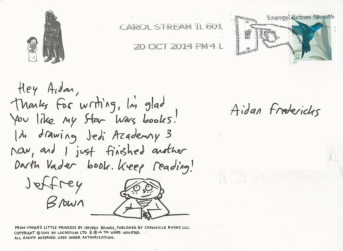 CAROL STREAM IL 601
20 OCT 2014 PM 4 L
Hey Aidan,
Thanks for writing, I'm glad
you like my Star Wars books!
I'm drawing Jedi Academy 3
now, and I just finished another
Darth Vader book. Keep reading!
Jeffrey
Brown
Aidan Fredericks
FROM VADER'S LITTLE PRINCESS BY JEFFREY BROWN, PUBLISHED BY CHRONICLE BOOKS LLC.
ALL RIGHTS RESERVED. USED UNDER AUTHORIZATION.